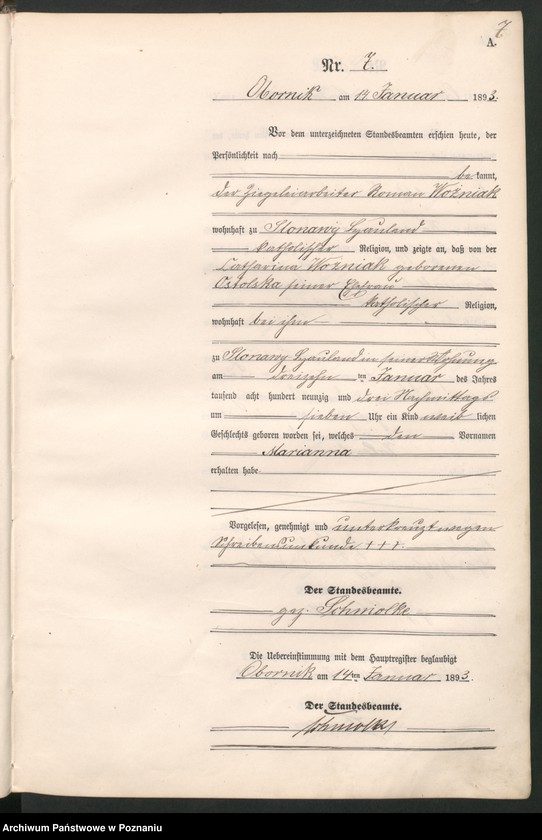 7
A.
Nr. 7.
Obornik am 14 Januar 1893.
Vor dem unterzeichneten Standesbeamten erschien heute, der
Persönlichkeit nach
bekannt,
der Ziegeleiarbeiter Roman Woźniak
wohnhaft zu Slonawy Hauland
katholischer Religion, und zeigte an, daß von der
Catharina Woźniak geborenen
seiner Ehefrau
katholischer Religion,
wohnhaft bei ihm
zu Slonawy Hauland in seiner Wohnung
am dreizehnten Januar des Jahres
tausend acht hundert neunzig und drei Nachmittags
um sieben Uhr ein Kind weiblichen
Geschlechts geboren worden sei, welches den Vornamen
Marianna
erhalten habe.
Vorgelesen, genehmigt und unterkreuzt wegen
Schreibensunkunde +++.
Der Standesbeamte.
gez. Schmolke
Die Uebereinstimmung mit dem Hauptregister beglaubigt
Obornik am 14ten Januar 1893.
Der Standesbeamte.
Schmolke
Archiwum Państwowe w Poznaniu